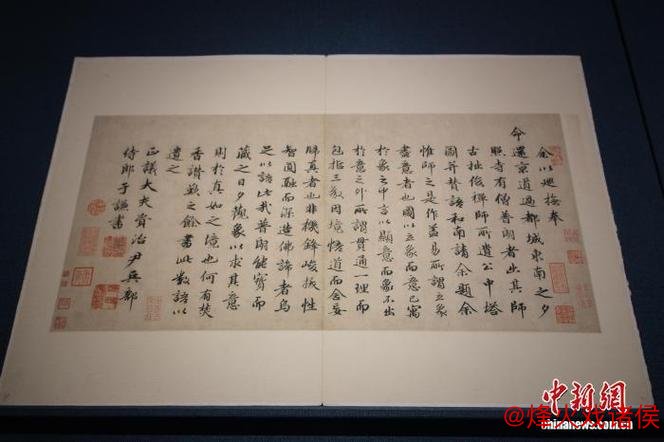 余以巡撫奉
命還京道過都城東南之夕
照寺有僧普朗者出其師
古拙俊禪師所遺公中塔
圖并贊語和南請余題余
惟師之是作蓋易所謂立象
盡意者也圖以立象而意已寓
於象之中言以顯意而象不出
於意之外所謂貫通一理而
包括三教因境悟道而舍妄
歸真者也非機鋒峻拔性
智圓融而深造佛諦者烏
足以語此哉普朗能寶而
藏之日夕觀象以求其意
則於真如之境也何有焚
香讚歎之餘書此數語以
遺之
正議大夫資治尹兵部
侍郎于謙書
中新網
chinanews.com.cn
@烽火戏诸侯